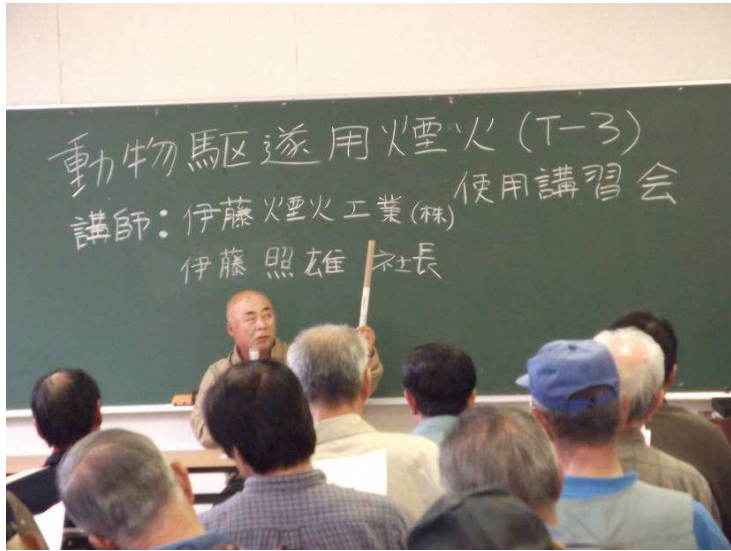 動物駆逐用煙火(T-3)
使用講習会
講師：伊藤煙火工業(株)
伊藤照雄 社長